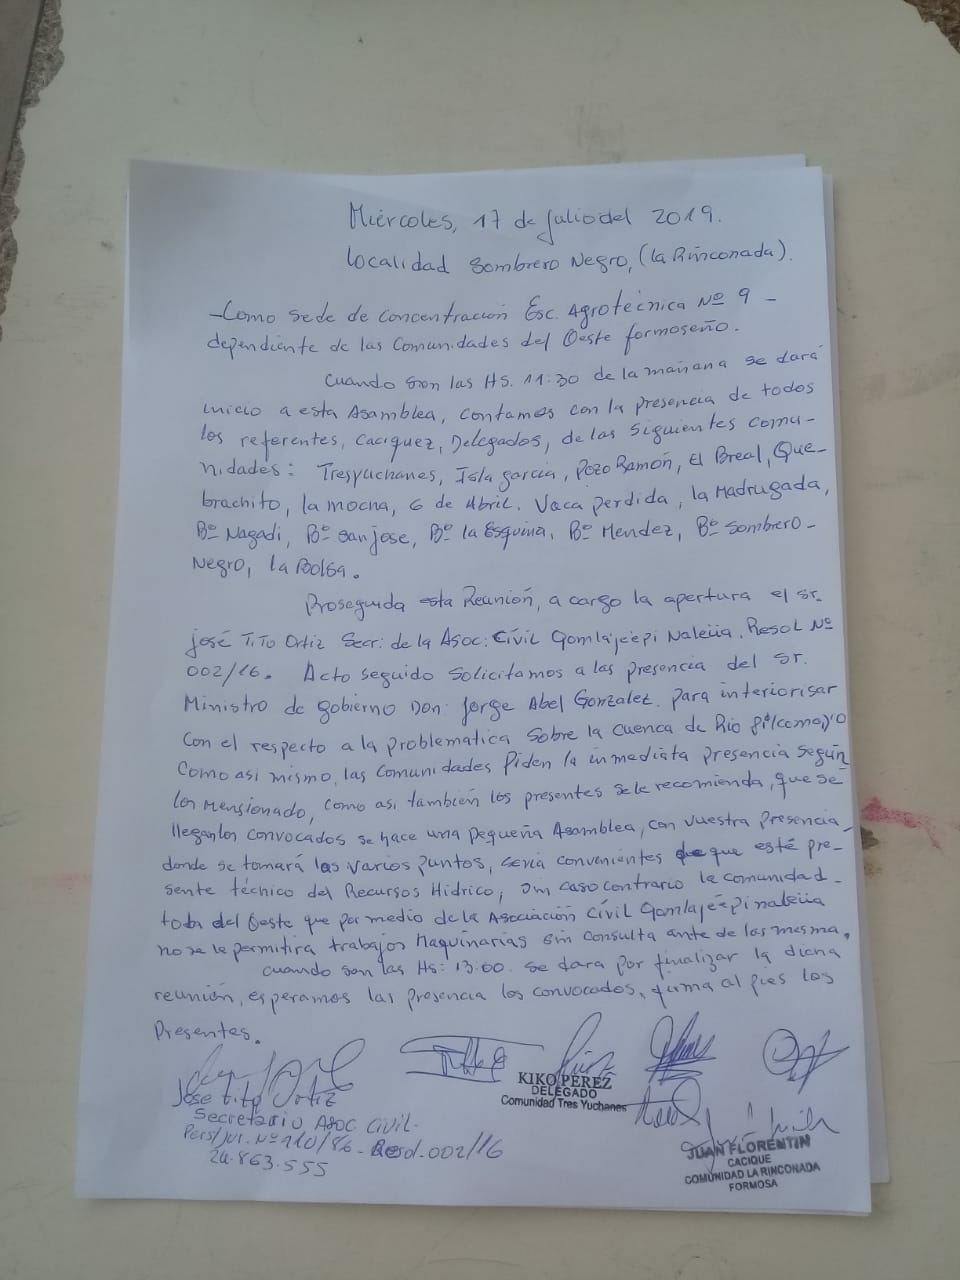 Miércoles, 17 de Julio del 2019.
Localidad Sombrero Negro, (la Rinconada).
-Como sede de concentración Esc. Agrotécnica Nº 9 -
dependiente de las Comunidades del Oeste formoseño.
Cuando son las Hs. 11:30 de la mañana se dará
inicio a esta Asamblea, contamos con la presencia de todos
los referentes, Caciquez, Delegados, de las siguientes comu-
nidades: Tresyuchanes, Isla garcia, Pozo Ramón, el Breal, Que-
brachito, la mocha, 6 de Abril. Vaca perdida, la Madrugada,
Bº Nagadi, Bº San jose, Bº la Esquina, Bº Mendez, Bº Sombrero-
Negro, la Bolsa.
Proseguida esta Reunión, a cargo la apertura el Sr.
José Tito Ortiz Secr. de la Asoc. Civil Qomlajeepi Naleüa. Resol Nº
002/16. Acto seguido Solicitamos a las presencia del Sr.
Ministro de gobierno Don: Jorge Abel Gonzalez. para interiorisar
Con el respecto a la problematica Sobre la cuenca de Rio pilcomayo
Como asi mismo, las Comunidades Piden la inmediata presencia según
los Mensionado, como asi también los presentes se le recomienda, que se
llegan los convocados se hace una pequeña Asamblea, con vuestra presencia
donde se tomará los varios puntos, sería convenientes que esté pre-
sente técnico del Recursos Hídrico, caso contrario la comunidad-
toda del Oeste que por medio de la Asociación Civil Qomlajeepi naleüa
no se le permitira trabajos Maquinarias sin consulta ante de las mesma.
cuando son las Hs: 13:00. se dara por finalizar la dicha
reunión, esperamos las presencia los convocados, firma al pies los
Presentes.
José tito Ortiz
Secretario Asoc Civil.
Pers/Jur. Nº 110/86 - Resol. 002/16
24.863.555
KIKO PÉREZ
DELEGADO
Comunidad Tres Yuchanes
JUAN FLORENTIN
CACIQUE
COMUNIDAD LA RINCONADA
FORMOSA